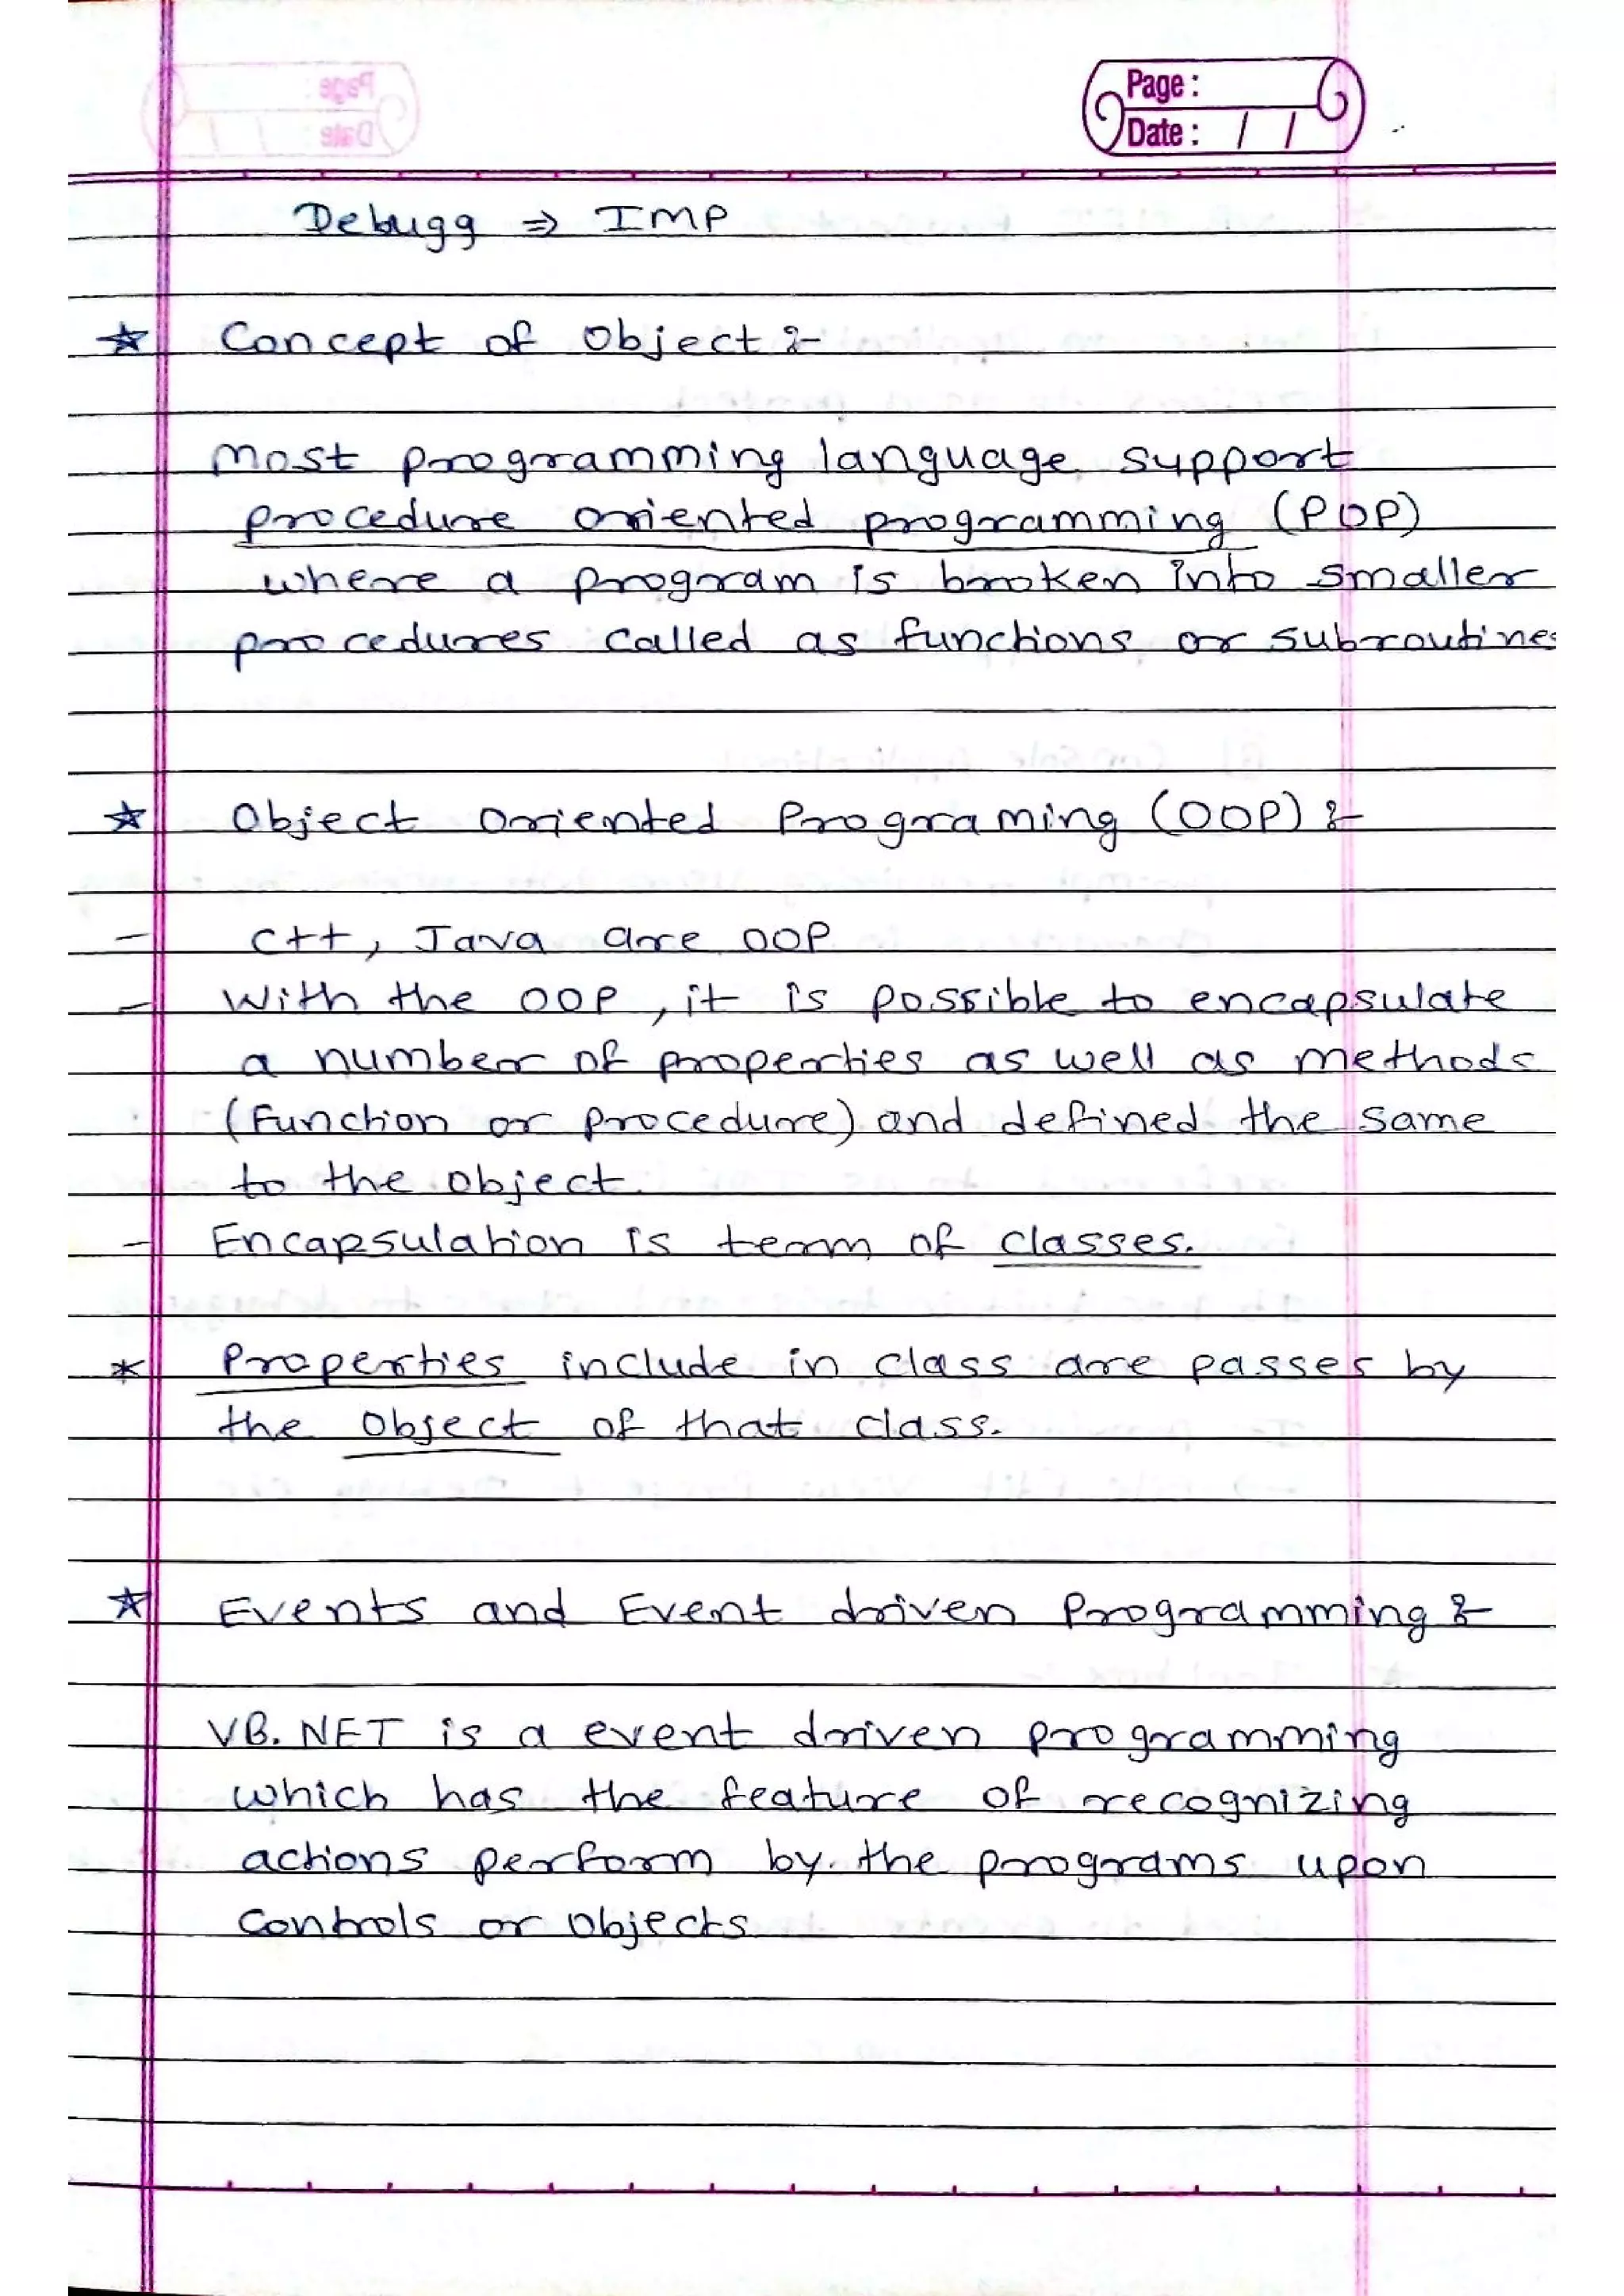 Page :
Date : / /
Debugg ⇒ IMP
☆ Concept of Object :-
Most programming language support
procedure oriented programming (POP)
where a program is broken into smaller
procedures called as functions or subroutines
☆ Object Oriented Programing (OOP) :-
- C++, Java are OOP
- With the OOP, it is possible to encapsulate
a number of properties as well as methods
(Function or procedure) and defined the same
to the object.
- Encapsulation is term of classes.
* Properties include in class are passes by
the Object of that class.
☆ Events and Event driven Programming :-
VB.NET is a event driven programming
which has the feature of recognizing
actions perform by the programs upon
controls or objects